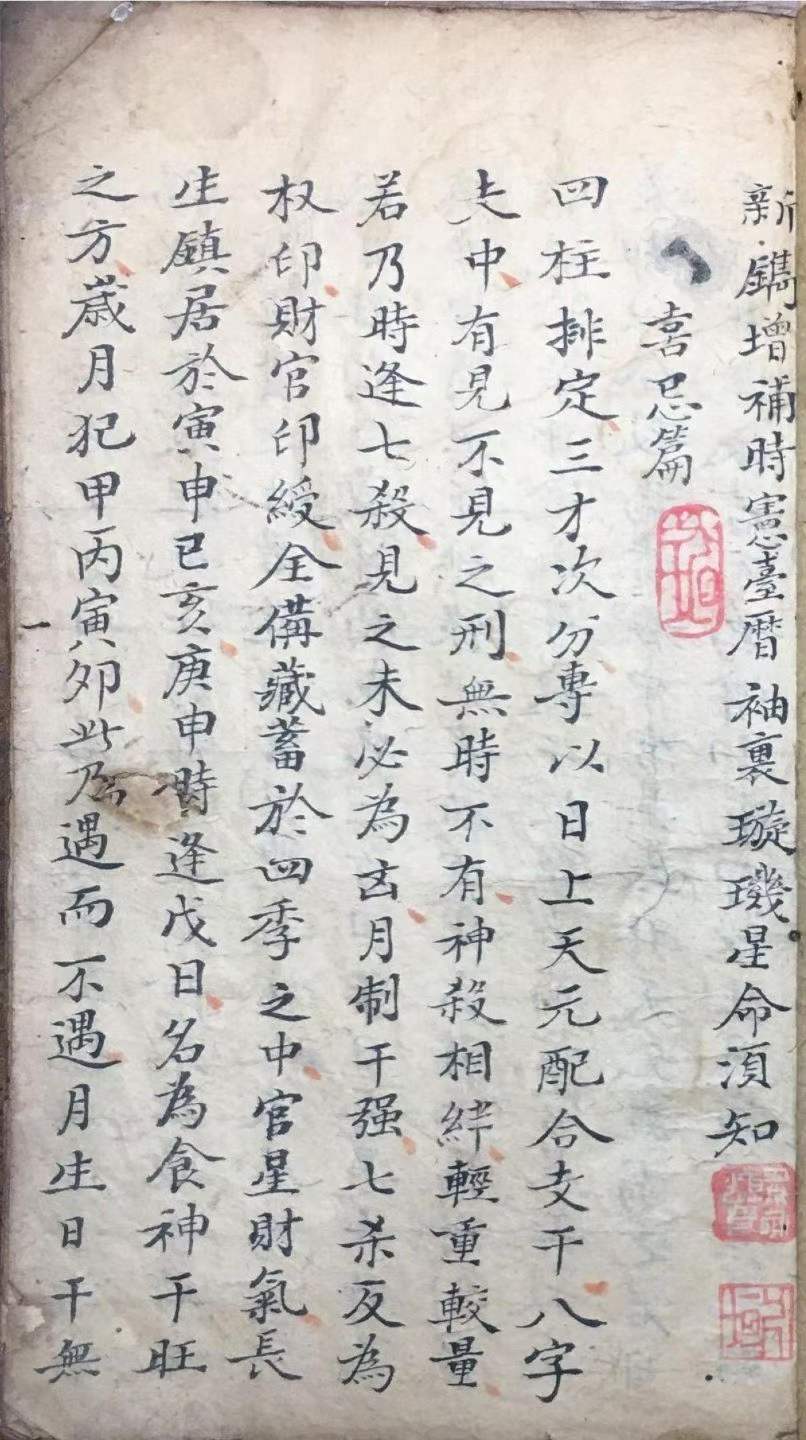 新鐫增補時憲臺曆袖裏璇璣星命須知
喜忌篇
四柱排定三才次分專以日上天元配合支干八字
夫中有見不見之刑無時不有神殺相絆輕重較量
若乃時逢七殺見之未必為凶月制干强七杀反為
权印財官印綬全備藏蓄於四季之中官星財氣長
生鎮居於寅申巳亥庚申時逢戊日名為食神干旺
之方歲月犯甲丙寅夘此乃遇而不遇月生日干無